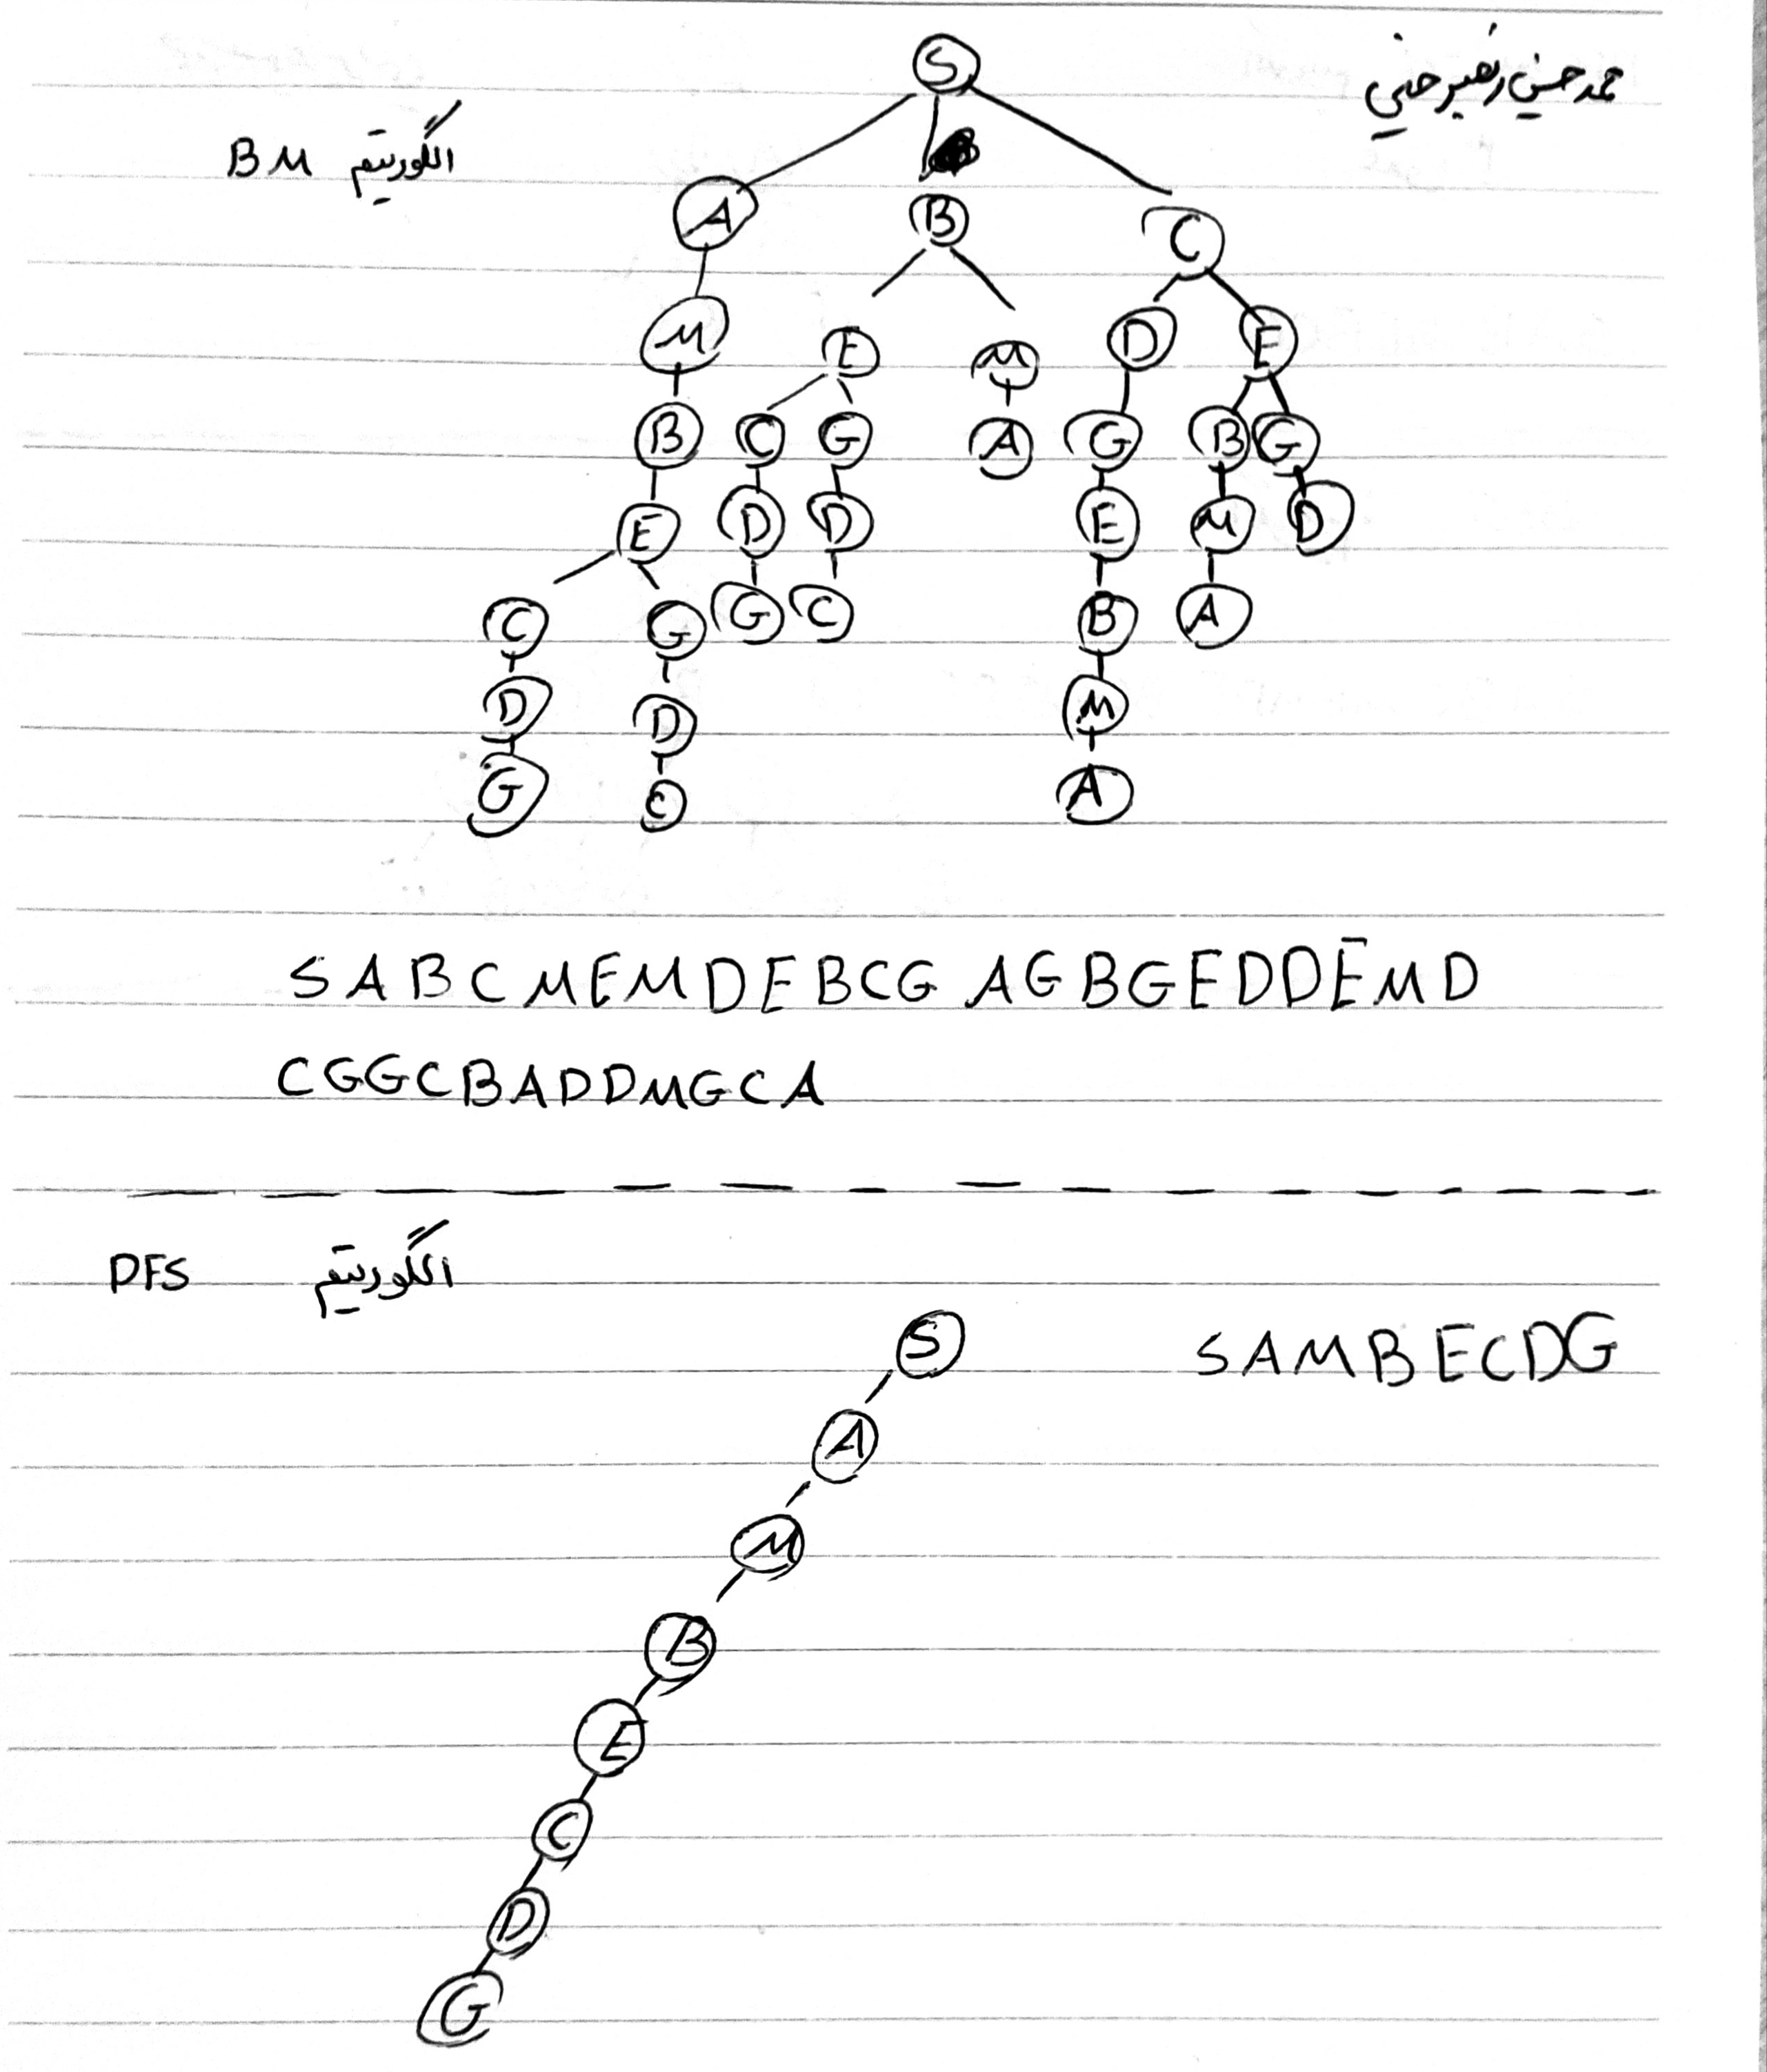 S
الگوریتم BM
A B C
M E M D E
B C G A G B G
E D D E M D
C G G C B A
D D M
G C A
SABCMEMDEBCG AGBGEDDEMD
CGGCBADDMGCA
DFS الگوریتم
S
SAMBECDG
A
M
B
E
C
D
G